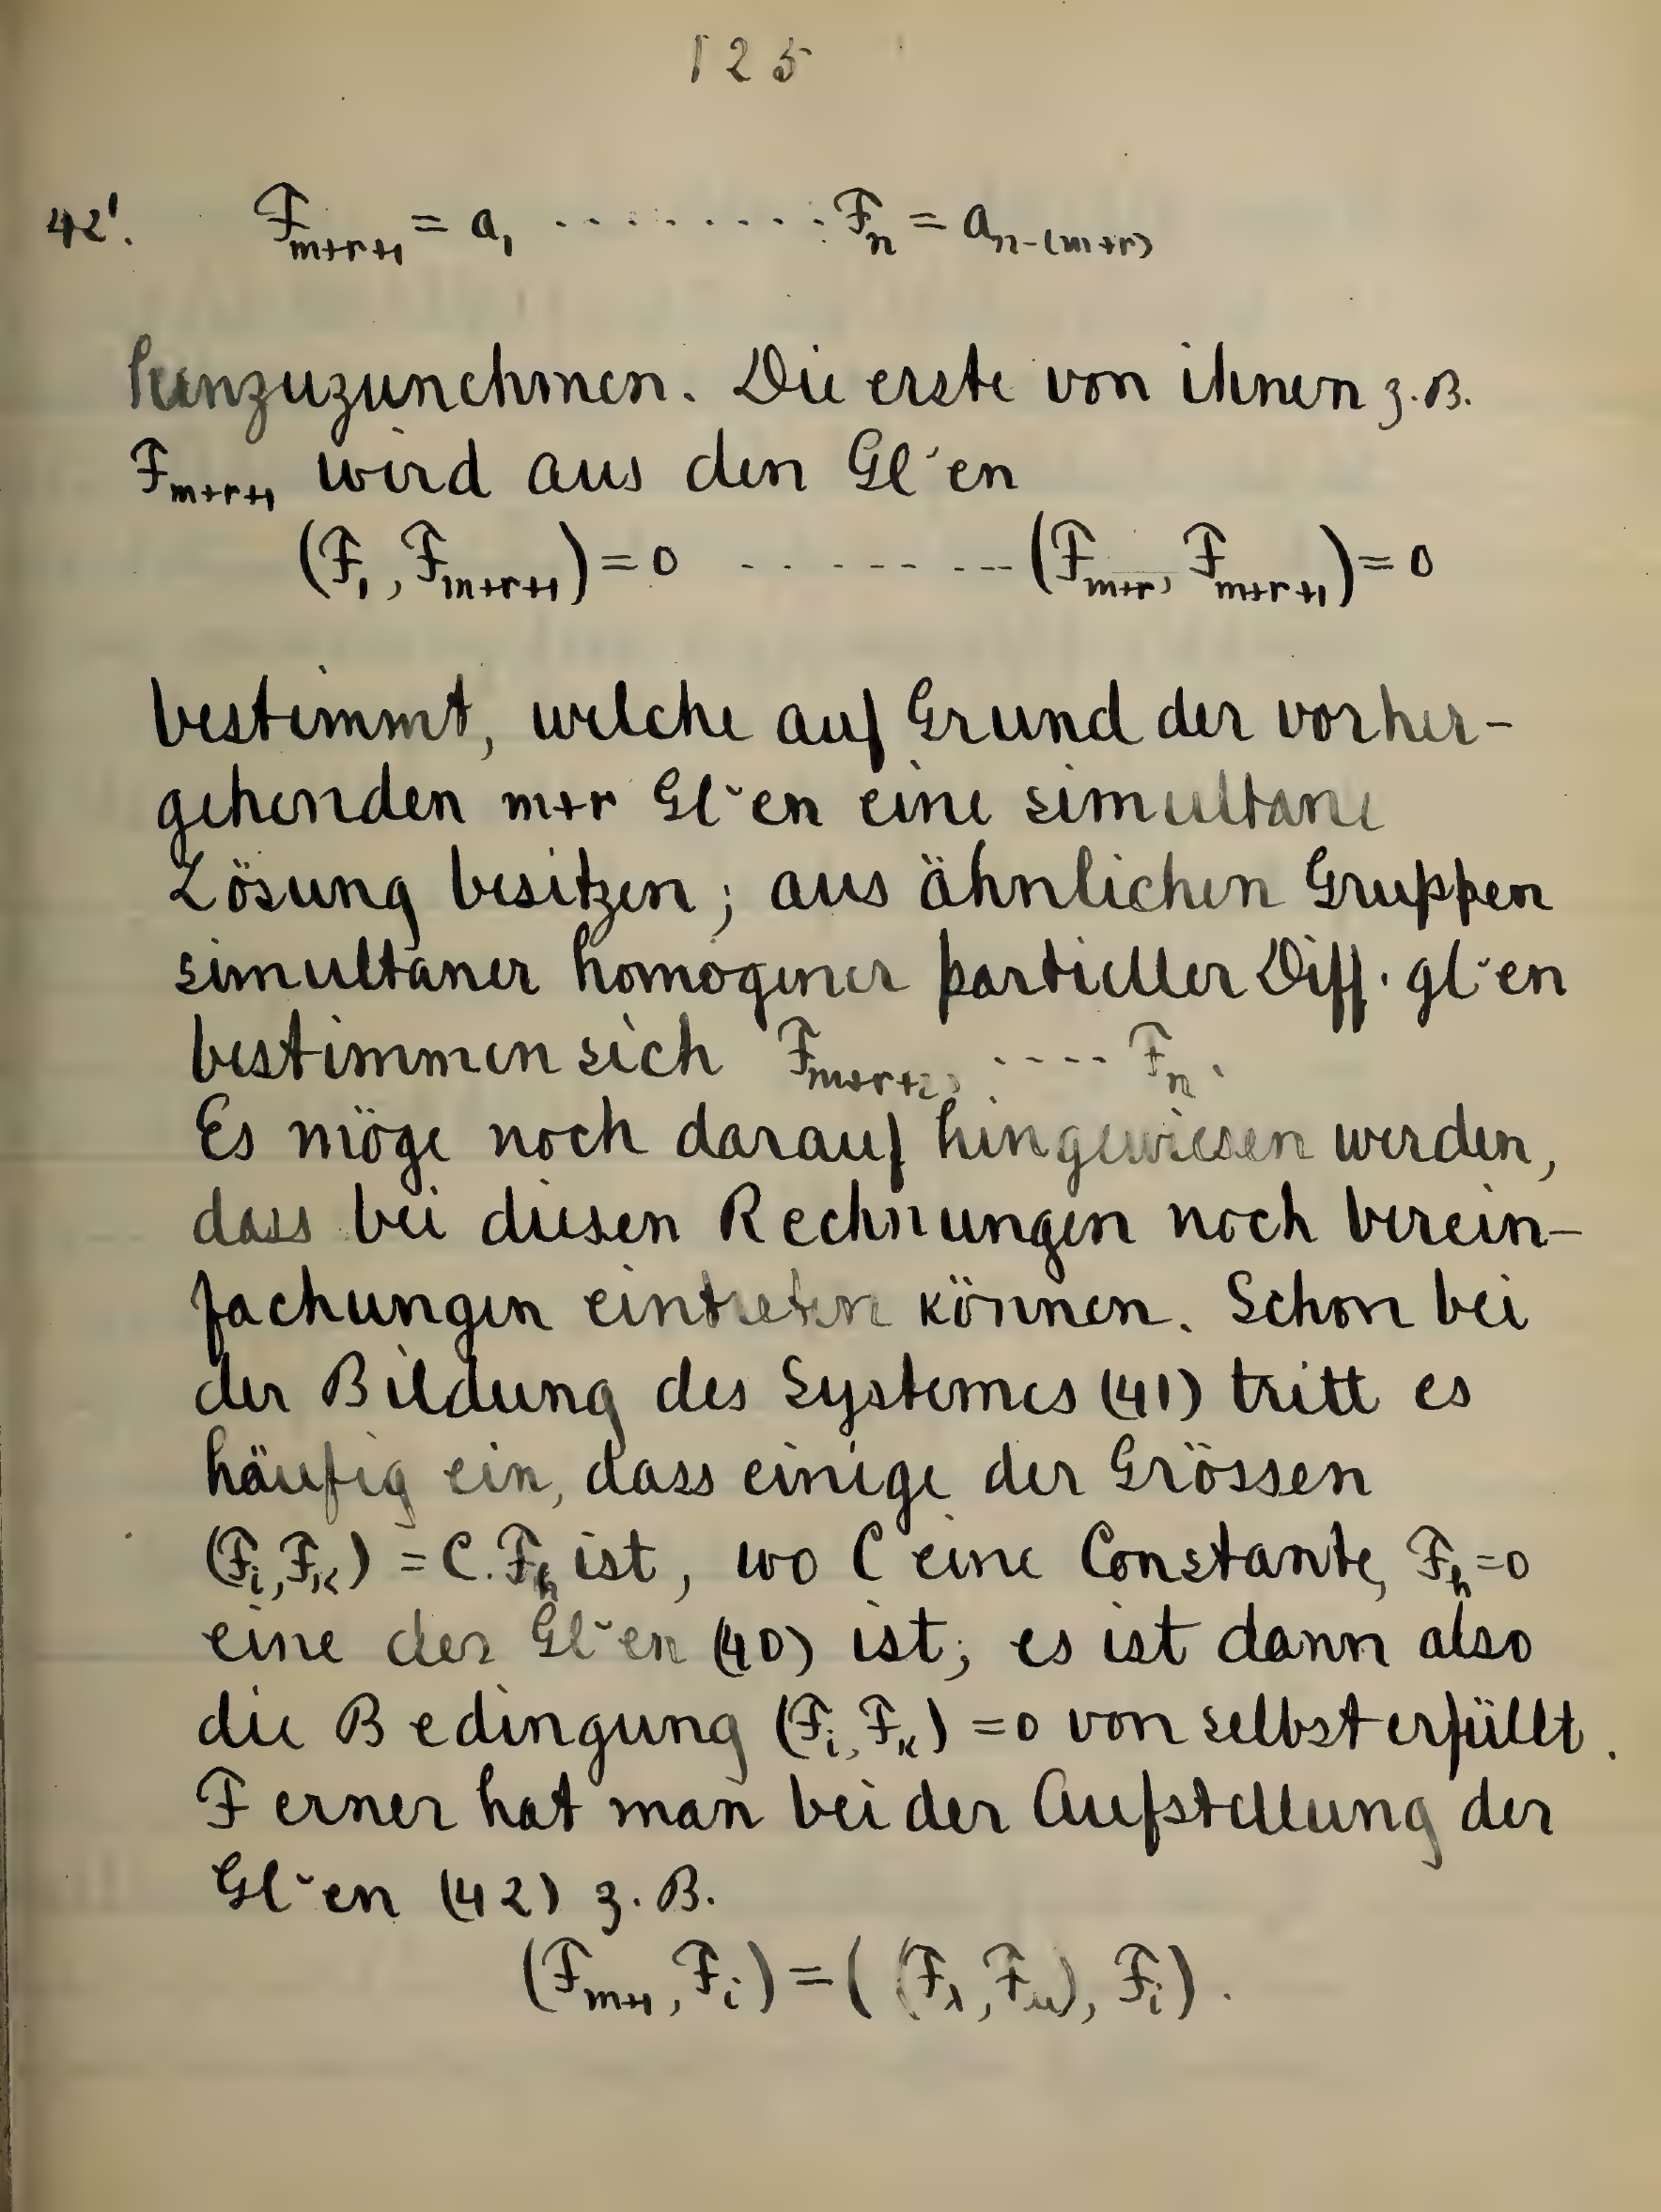 125
42'. F_{m+r+1} = a_1 ········· F_n = a_{n-(m+r)}
hinzuzunehmen. Die erste von ihnen z.B.
F_{m+r+1} wird aus den Gl˘en
(F_1, F_{m+r+1}) = 0 - - - - - - - - (F_{m+r}, F_{m+r+1}) = 0
bestimmt, welche auf Grund der vorher-
gehenden m+r Gl˘en eine simultane
Lösung besitzen; aus ähnlichen Gruppen
simultaner homogener partieller Diff. gl˘en
bestimmen sich F_{m+r+2}, ····· F_n.
Es möge noch darauf hingewiesen werden,
dass bei diesen Rechnungen noch Verein-
fachungen eintreten können. Schon bei
der Bildung des Systemes (41) tritt es
häufig ein, dass einige der Grössen
(F_i, F_κ) = C. F_h ist, wo C eine Constante, F_h = 0
eine der Gl˘en (40) ist; es ist dann also
die Bedingung (F_i, F_κ) = 0 von selbst erfüllt.
Ferner hat man bei der Aufstellung der
Gl˘en (42) z. B.
(F_{m+1}, F_i) = ((F_λ, F_μ), F_i).